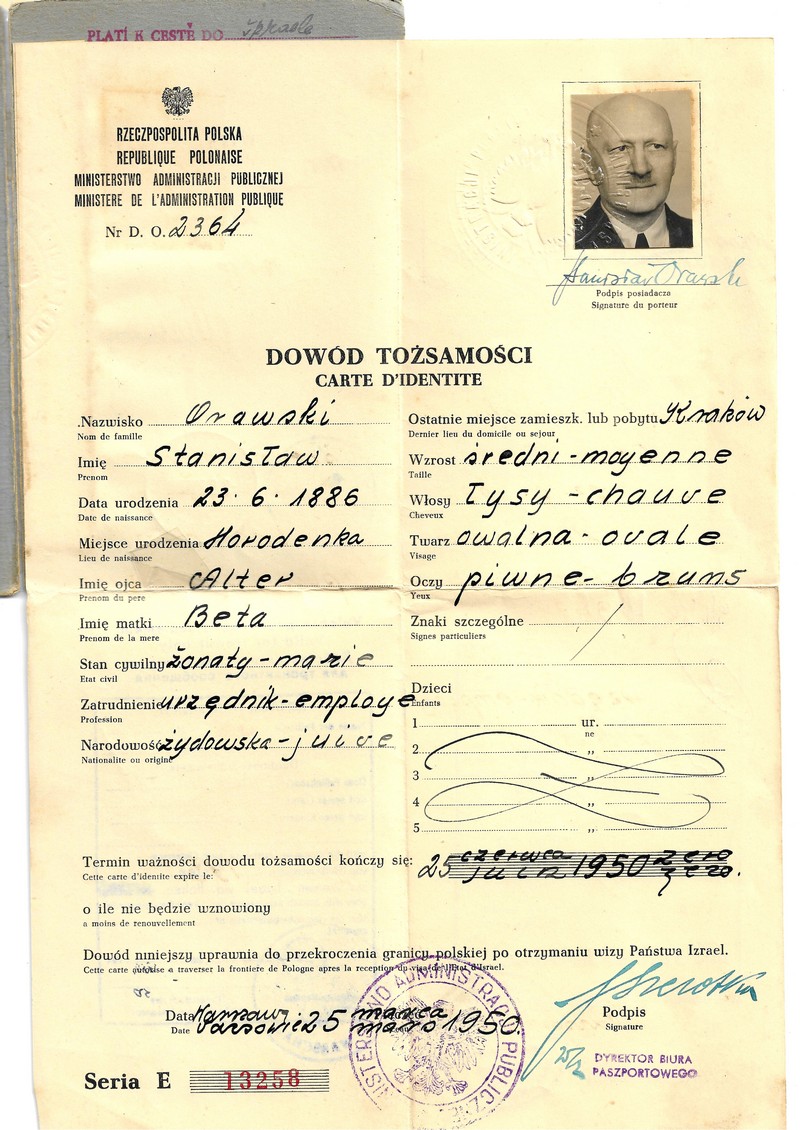 PLATÍ K CESTĚ DO
RZECZPOSPOLITA POLSKA
REPUBLIQUE POLONAISE
MINISTERSTWO ADMINISTRACJI PUBLICZNEJ
MINISTERE DE L'ADMINISTRATION PUBLIQUE
Nr D. O. 2364
Stanisław Orawski
Podpis posiadacza
Signature du porteur
DOWÓD TOŻSAMOŚCI
CARTE D'IDENTITE
Nazwisko Orawski
Nom de famille
Imię Stanisław
Prenom
Data urodzenia 23.6.1886
Date de naissance
Miejsce urodzenia Horodenka
Lieu de naissance
Imię ojca Alter
Prenom du pere
Imię matki Beta
Prenom de la mere
Stan cywilny żonaty - marie
Etat civil
Zatrudnienie urzędnik - employe
Profession
Narodowość żydowska - juive
Nationalite ou origine
Ostatnie miejsce zamieszk. lub pobytu Kraków
Dernier lieu du domicile ou sejour
Wzrost średni - moyenne
Taille
Włosy łysy - chauve
Cheveux
Twarz owalna - ovale
Visage
Oczy piwne - bruns
Yeux
Znaki szczególne /
Signes particuliers
Dzieci
Enfants
1 ur.
ne
2 „
3 „
4 „
5 „
Termin ważności dowodu tożsamości kończy się: 25 czerwca 1950 zero
Cette carte d'identite expire le: juin zero.
o ile nie będzie wznowiony
a moins de renouvellement
Dowód niniejszy uprawnia do przekroczenia granicy polskiej po otrzymaniu wizy Państwa Izrael.
Cette carte autorise a traverser la frontiere de Pologne apres la reception du visa de l'Etat d'Israel.
Data Warszawa 25 marca 1950
Date Varsovie mars
Podpis
Signature
DYREKTOR BIURA
PASZPORTOWEGO
MINISTERSTWO ADMINISTRACJI PUBLICZNEJ
Seria E 13258